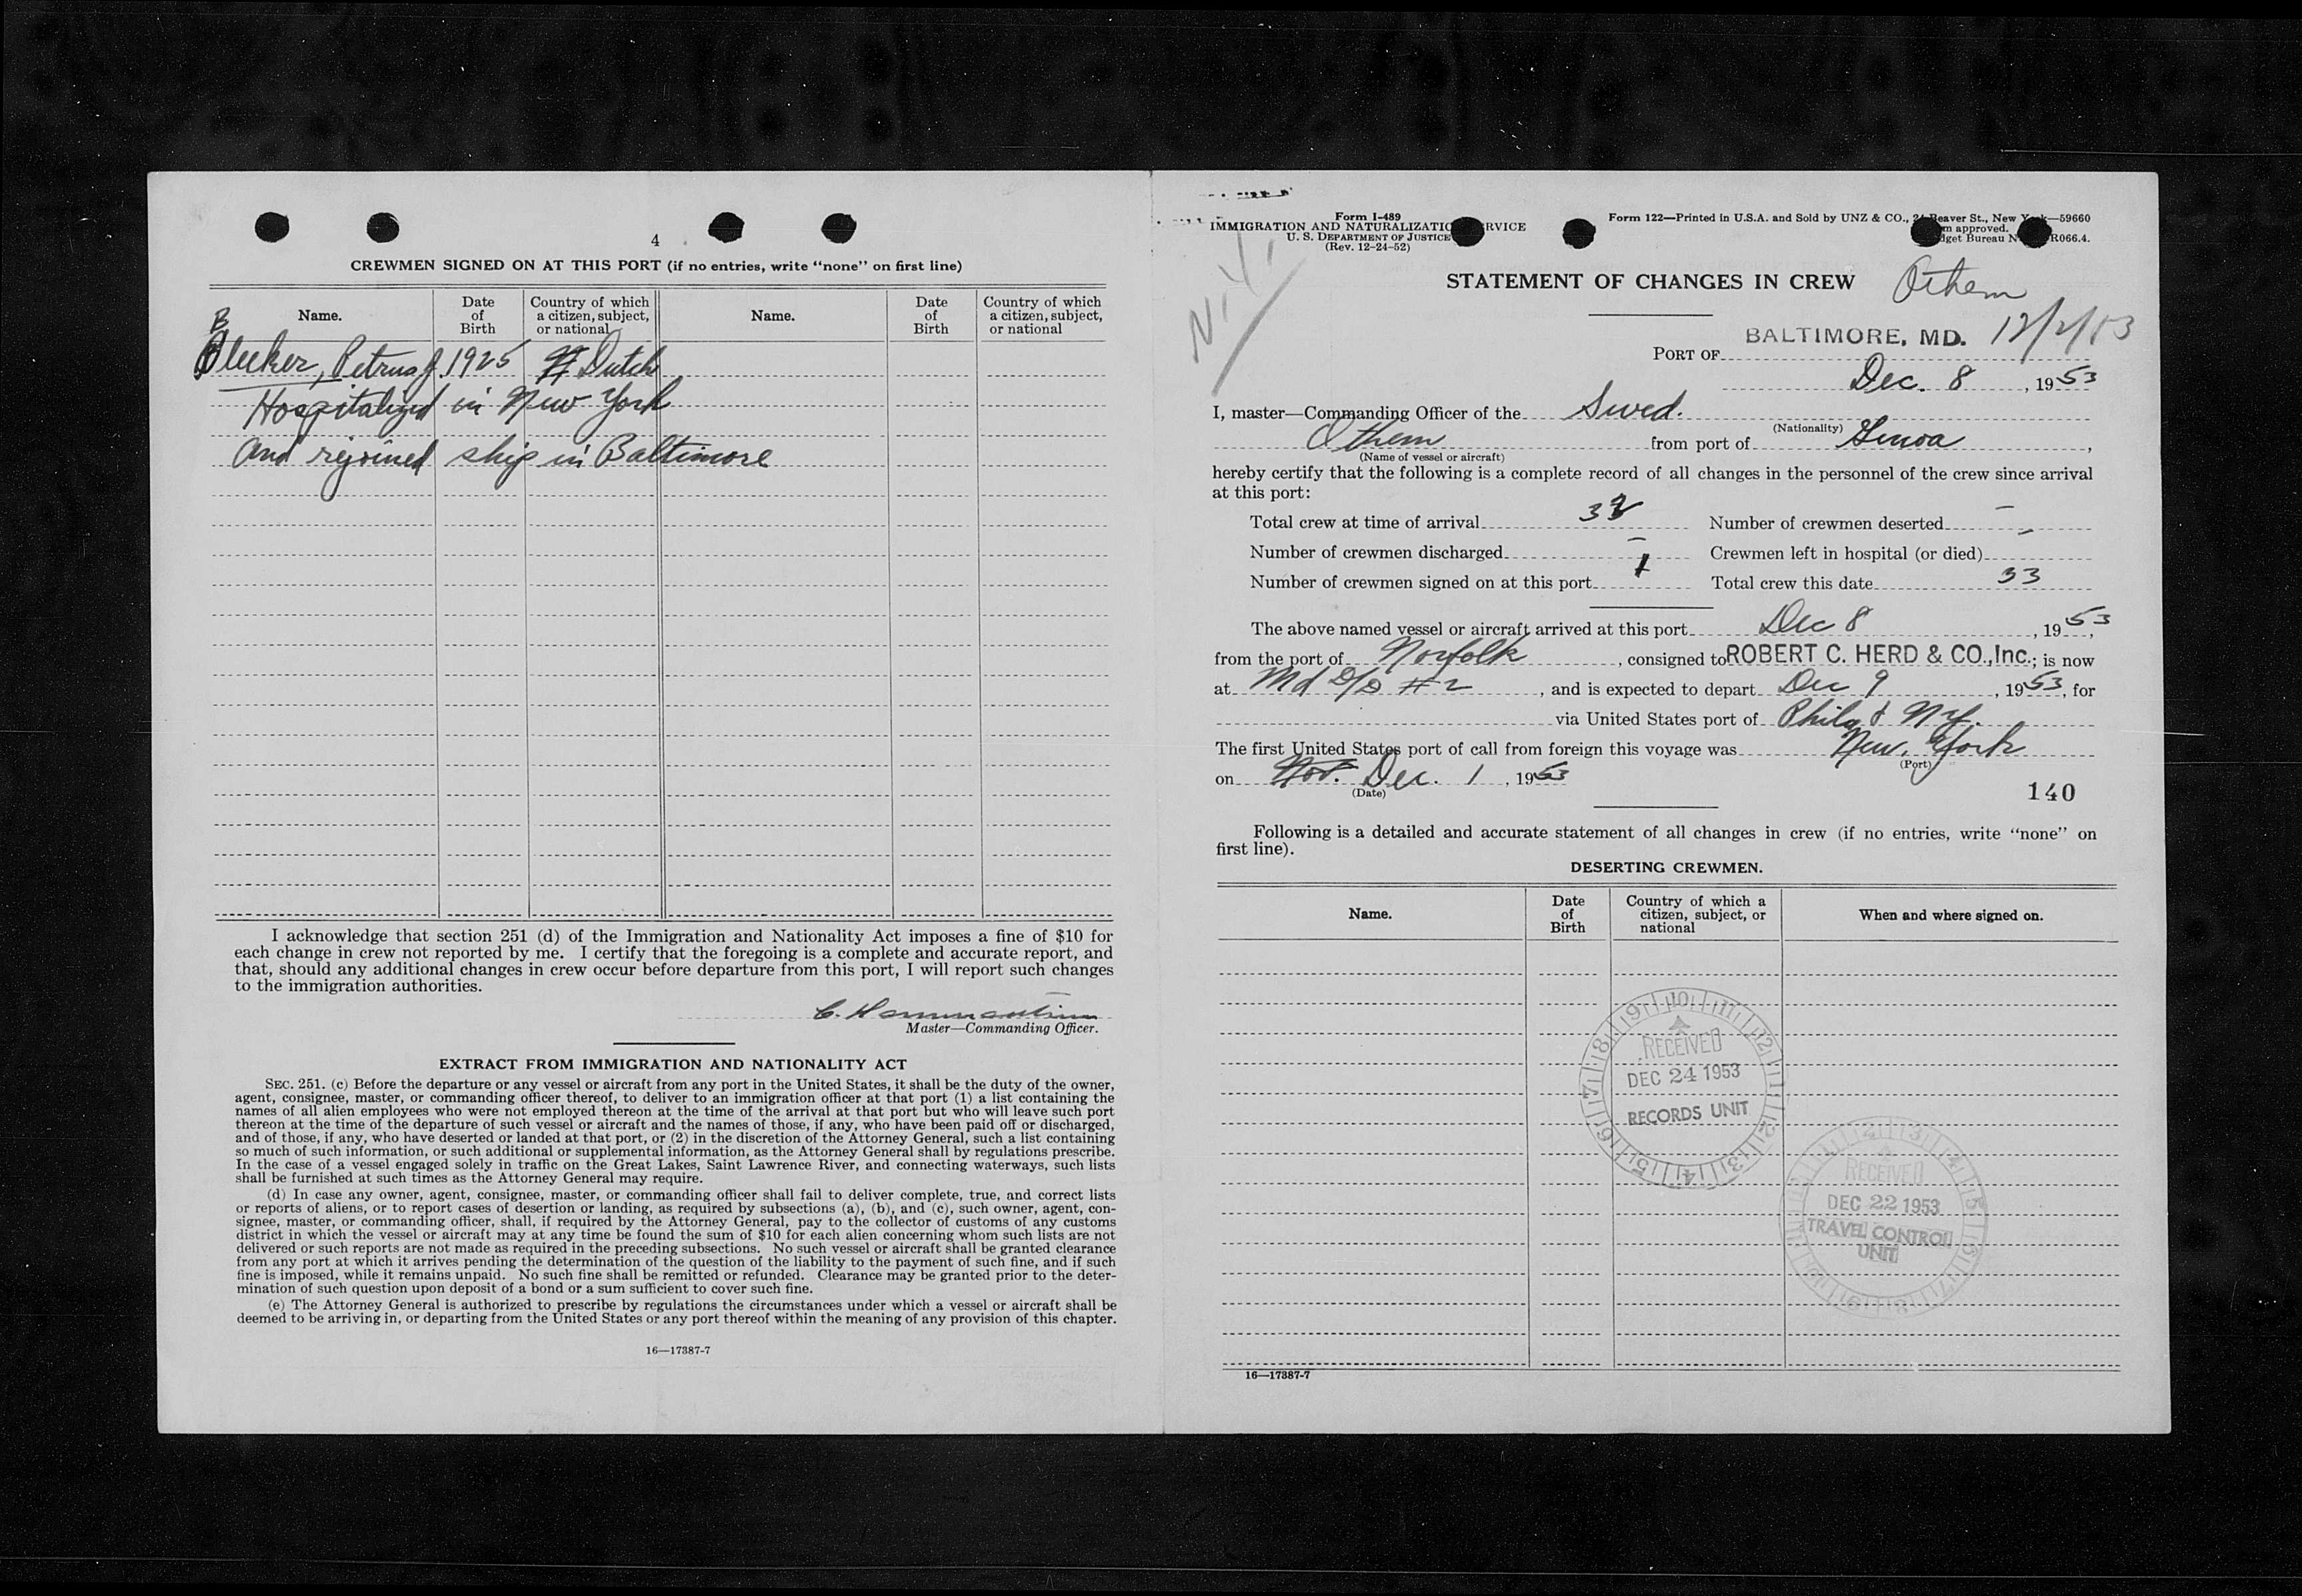 4
CREWMEN SIGNED ON AT THIS PORT (if no entries, write “none” on first line)
Name. Date of Birth Country of which a citizen, subject, or national Name. Date of Birth Country of which a citizen, subject, or national
B
Bleeker, Petrus J. 1925 Dutch
Hospitalized in New York
And rejoined ship in Baltimore
I acknowledge that section 251 (d) of the Immigration and Nationality Act imposes a fine of $10 for
each change in crew not reported by me. I certify that the foregoing is a complete and accurate report, and
that, should any additional changes in crew occur before departure from this port, I will report such changes
to the immigration authorities.
Master—Commanding Officer.
EXTRACT FROM IMMIGRATION AND NATIONALITY ACT
SEC. 251. (c) Before the departure or any vessel or aircraft from any port in the United States, it shall be the duty of the owner,
agent, consignee, master, or commanding officer thereof, to deliver to an immigration officer at that port (1) a list containing the
names of all alien employees who were not employed thereon at the time of the arrival at that port but who will leave such port
thereon at the time of the departure of such vessel or aircraft and the names of those, if any, who have been paid off or discharged,
and of those, if any, who have deserted or landed at that port, or (2) in the discretion of the Attorney General, such a list containing
so much of such information, or such additional or supplemental information, as the Attorney General shall by regulations prescribe.
In the case of a vessel engaged solely in traffic on the Great Lakes, Saint Lawrence River, and connecting waterways, such lists
shall be furnished at such times as the Attorney General may require.
(d) In case any owner, agent, consignee, master, or commanding officer shall fail to deliver complete, true, and correct lists
or reports of aliens, or to report cases of desertion or landing, as required by subsections (a), (b), and (c), such owner, agent, con-
signee, master, or commanding officer, shall, if required by the Attorney General, pay to the collector of customs of any customs
district in which the vessel or aircraft may at any time be found the sum of $10 for each alien concerning whom such lists are not
delivered or such reports are not made as required in the preceding subsections. No such vessel or aircraft shall be granted clearance
from any port at which it arrives pending the determination of the question of the liability to the payment of such fine, and if such
fine is imposed, while it remains unpaid. No such fine shall be remitted or refunded. Clearance may be granted prior to the deter-
mination of such question upon deposit of a bond or a sum sufficient to cover such fine.
(e) The Attorney General is authorized to prescribe by regulations the circumstances under which a vessel or aircraft shall be
deemed to be arriving in, or departing from the United States or any port thereof within the meaning of any provision of this chapter.
16—17387-7
Form I-489
IMMIGRATION AND NATURALIZATIO RVICE
U. S. DEPARTMENT OF JUSTICE
(Rev. 12-24-52)
Form 122—Printed in U.S.A. and Sold by UNZ & CO., 24 Beaver St., New York—59660
m approved.
dget Bureau N R066.4.
N.Y.
STATEMENT OF CHANGES IN CREW
Othem
12/2/53
PORT OF BALTIMORE, MD.
Dec. 8, 1953
I, master—Commanding Officer of the Swed.
(Nationality)
Othem from port of Genoa,
(Name of vessel or aircraft)
hereby certify that the following is a complete record of all changes in the personnel of the crew since arrival
at this port:
Total crew at time of arrival 32 Number of crewmen deserted –
Number of crewmen discharged – Crewmen left in hospital (or died) –
Number of crewmen signed on at this port 1 Total crew this date 33
The above named vessel or aircraft arrived at this port Dec 8, 1953,
from the port of Norfolk, consigned to ROBERT C. HERD & CO., Inc.; is now
at Md D/D #2, and is expected to depart Dec 9, 1953, for
via United States port of Phila & N.Y.
The first United States port of call from foreign this voyage was New York
(Port)
on Nov. Dec. 1, 1953
(Date)
140
Following is a detailed and accurate statement of all changes in crew (if no entries, write “none” on
first line).
DESERTING CREWMEN.
Name. Date of Birth Country of which a citizen, subject, or national When and where signed on.
RECEIVED
DEC 24 1953
RECORDS UNIT
RECEIVED
DEC 22 1953
TRAVEL CONTROL
UNIT
16—17387-7